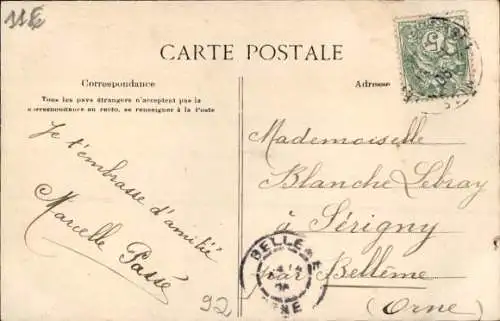 11€
CARTE POSTALE
Correspondance
Tous les pays étrangers n'acceptent pas la
correspondance au recto, se renseigner à la Poste
Je t'embrasse d'amitié
Marcelle Passé
92
Adresse
5
Mademoiselle
Blanche Lebray
à Sérigny
par Bellême
(Orne)
BELLÊME
ORNE